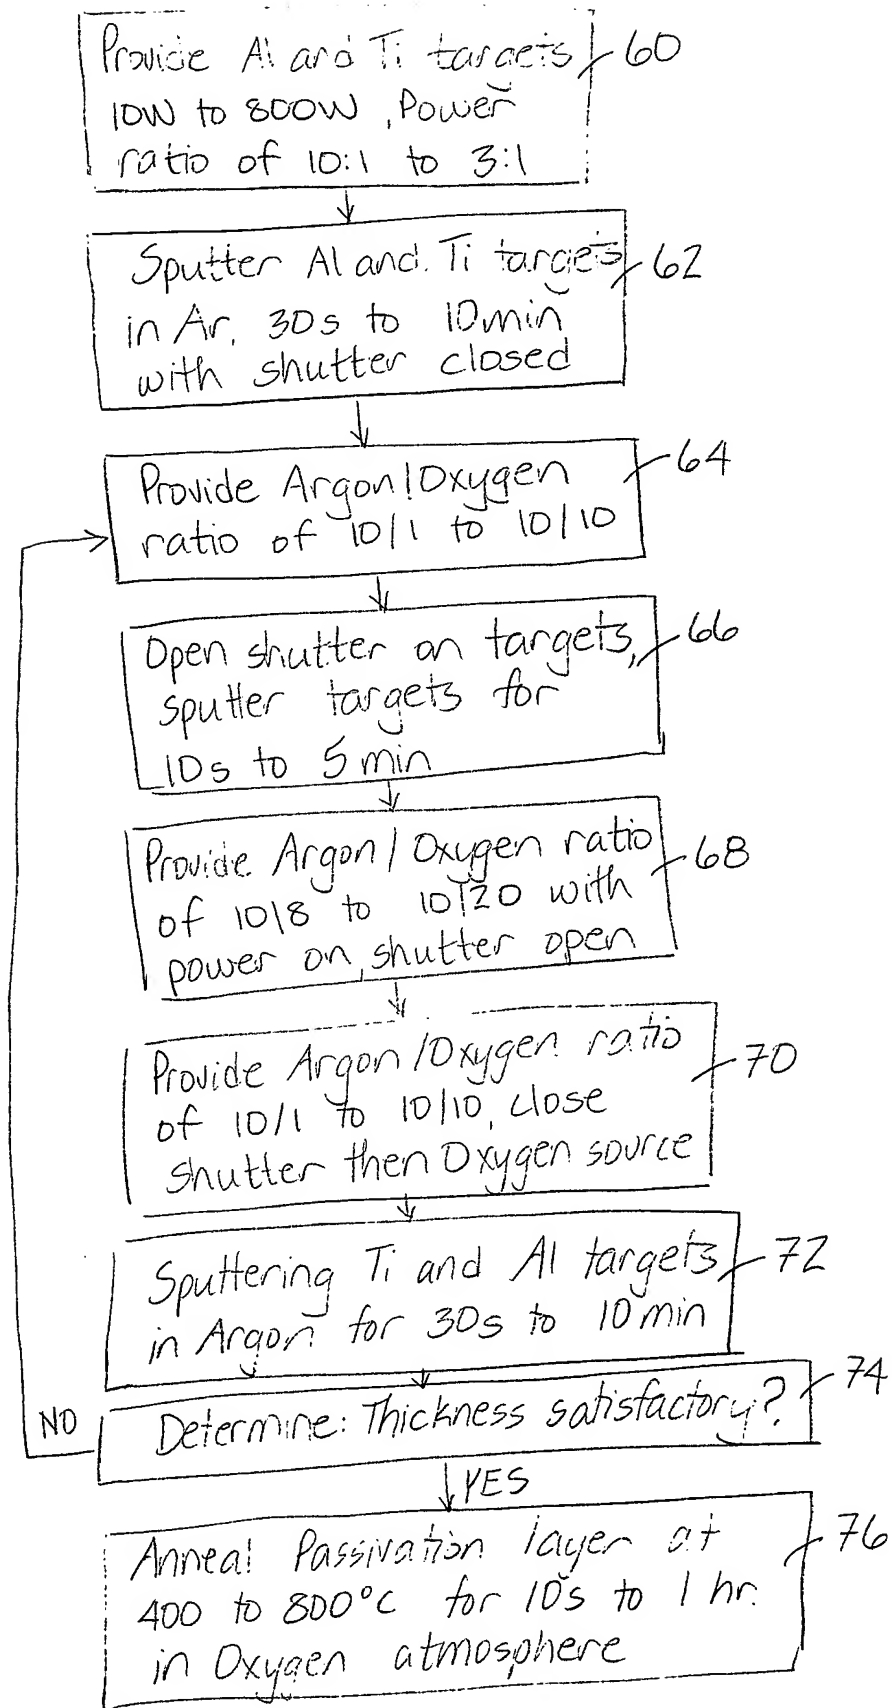 Provide Al and Ti targets 60
10W to 800W, Power
ratio of 10:1 to 3:1
Sputter Al and Ti targets 62
in Ar, 30s to 10min
with shutter closed
Provide Argon/Oxygen 64
ratio of 10/1 to 10/10
Open shutter on targets, 66
sputter targets for
10s to 5min
Provide Argon/Oxygen ratio 68
of 10/8 to 10/20 with
power on, shutter open
Provide Argon/Oxygen ratio 70
of 10/1 to 10/10, close
shutter then Oxygen source
Sputtering Ti and Al targets 72
in Argon for 30s to 10min
NO Determine: Thickness satisfactory? 74
YES
Anneal Passivation layer at 76
400 to 800°C for 10s to 1 hr.
in Oxygen atmosphere